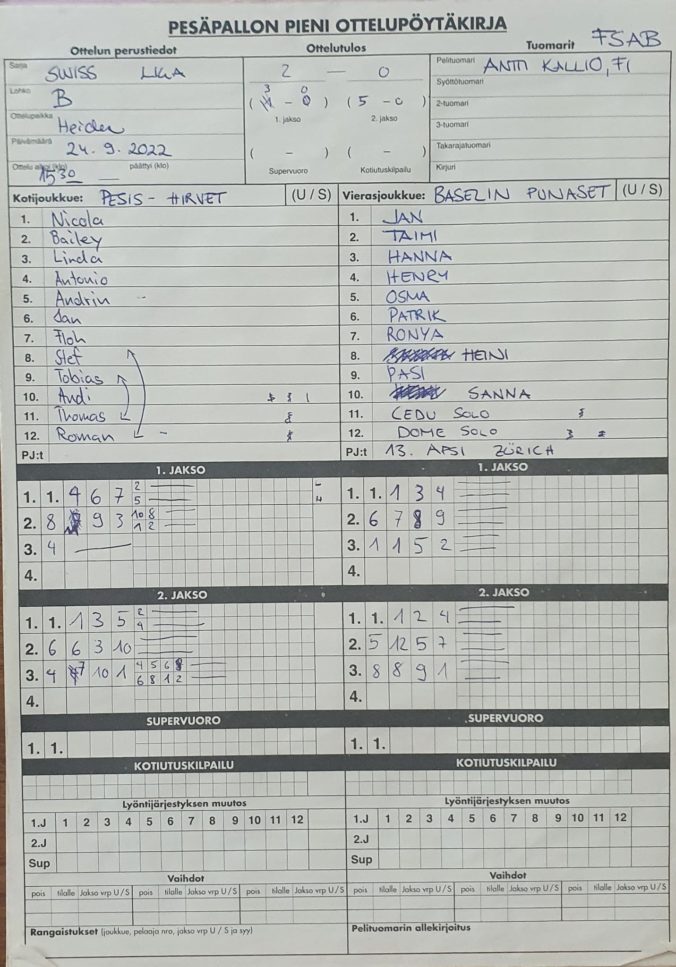 PESÄPALLON PIENI OTTELUPÖYTÄKIRJA
FSAB
Ottelun perustiedot
Ottelutulos
Tuomarit
Sarja SWISS LIGA
Lohko B
Ottelupaikka Heiden
Päivämäärä 24.9.2022
Ottelu alkoi (klo) 1530 päättyi (klo)
2 — 0
3 0
( - 0 ) ( 5 - 0 )
1. jakso 2. jakso
( - ) ( - )
Supervuoro Kotiutuskilpailu
Pelituomari ANTTI KALLIO, FI
Syöttötuomari
2-tuomari
3-tuomari
Takarajatuomari
Kirjuri
Kotijoukkue: PESIS - HIRVET (U / S)
1. Nicola
2. Bailey
3. Linda
4. Antonio
5. Andrin
6. Jan
7. Floh
8. Stef
9. Tobias
10. Andi
11. Thomas
12. Roman
PJ:t
Vierasjoukkue: BASELIN PUNASET (U / S)
1. JAN
2. TAIMI
3. HANNA
4. HENRY
5. OSMA
6. PATRIK
7. RONYA
8. HEINI
9. PASI
10. SANNA
11. CEDU SOLO
12. DOME SOLO
PJ:t 13. APSI ZÜRICH
1. JAKSO
1. 1. 4 6 7 2 5
2. 8 9 3 10 8 1 2
3. 4
4.
1. JAKSO
1. 1. 1 3 4
2. 6 7 8 9
3. 1 1 5 2
4.
2. JAKSO
1. 1. 1 3 5 2 9
2. 6 6 3 10
3. 4 7 10 1 4 5 6 8 6 8 1 2
4.
2. JAKSO
1. 1. 1 2 4
2. 5 12 5 7
3. 8 8 9 1
4.
SUPERVUORO
1. 1.
SUPERVUORO
1. 1.
KOTIUTUSKILPAILU
KOTIUTUSKILPAILU
Lyöntijärjestyksen muutos
1.J 1 2 3 4 5 6 7 8 9 10 11 12
2.J
Sup
Lyöntijärjestyksen muutos
1.J 1 2 3 4 5 6 7 8 9 10 11 12
2.J
Sup
Vaihdot
pois tilalle Jakso vrp U / S pois tilalle Jakso vrp U / S pois tilalle Jakso vrp U / S
Vaihdot
pois tilalle Jakso vrp U / S pois tilalle Jakso vrp U / S pois tilalle Jakso vrp U / S
Rangaistukset (joukkue, pelaaja nro, jakso vrp U / S ja syy)
Pelituomarin allekirjoitus